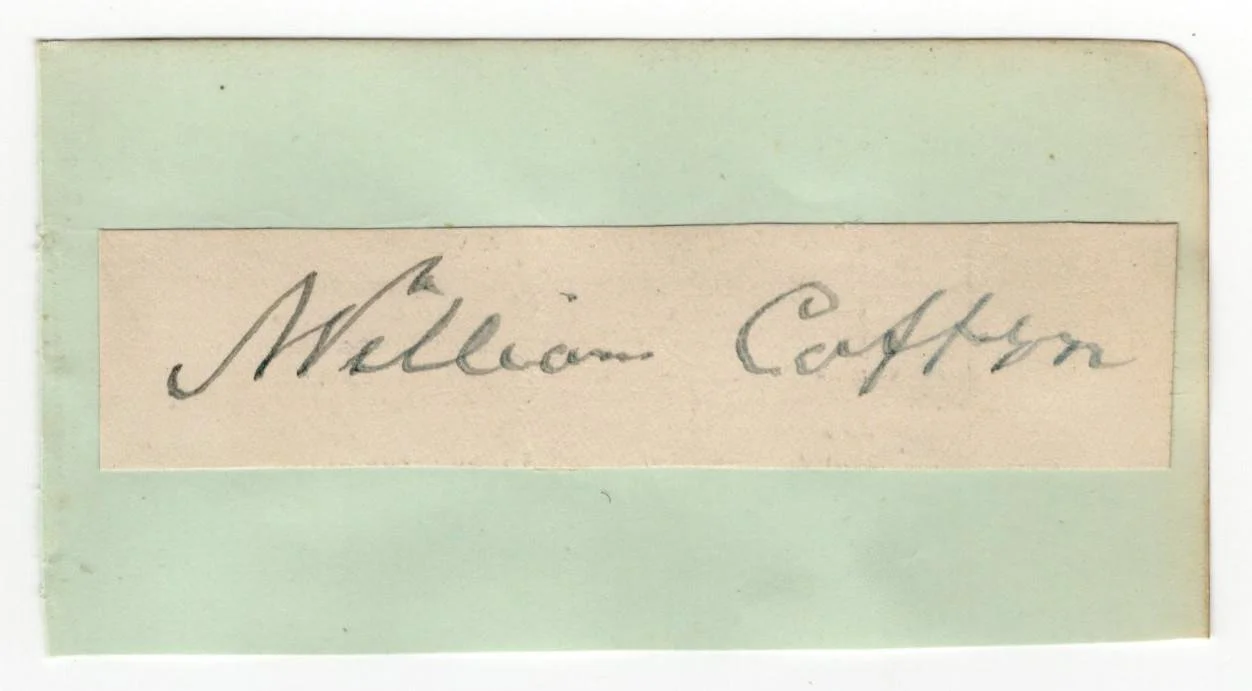 William Coffyn